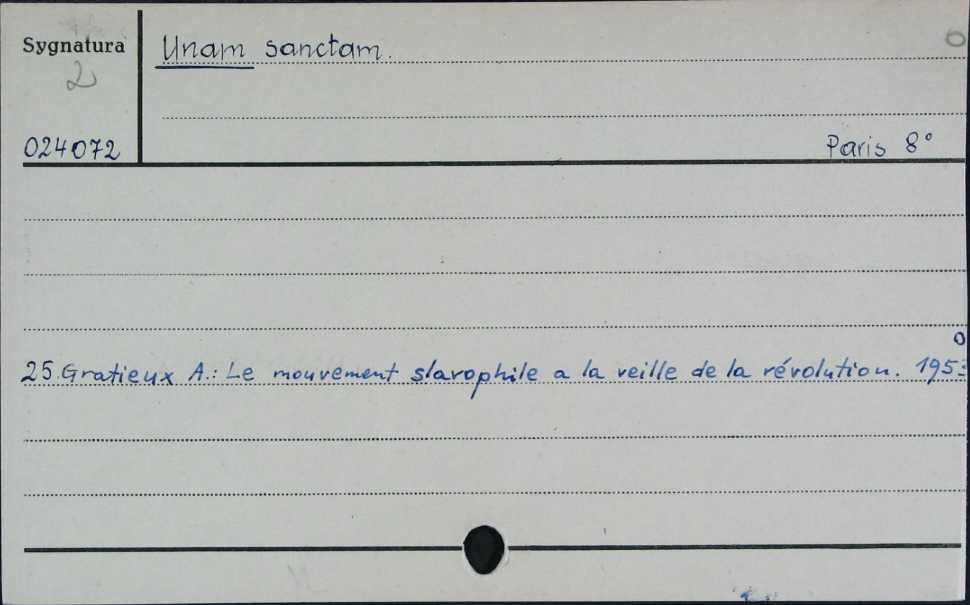 Sygnatura
Unam sanctam.
2
024072
Paris 8°
25. Gratieux A.: Le mouvement slavophile a la veille de la révolution. 1953